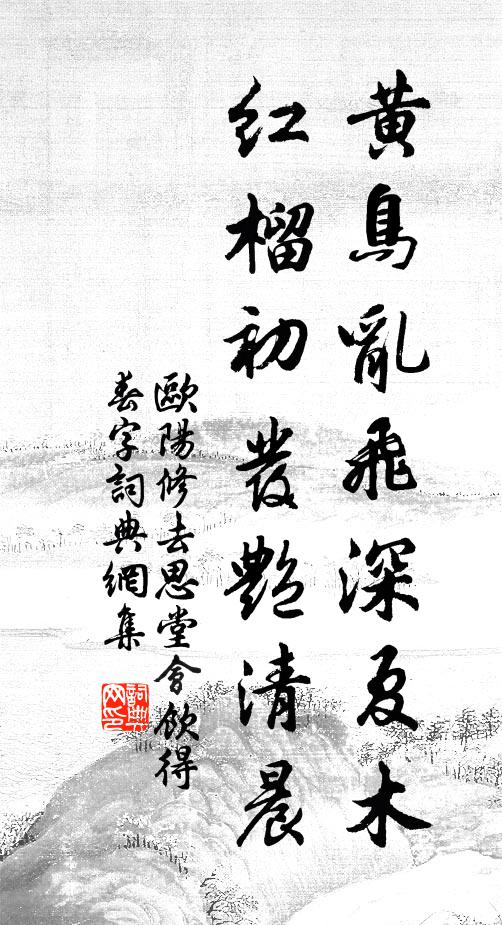 黃鳥亂飛深夏木
紅榴初發艷清晨
歐陽修去思堂會飲得
春字詞典網集
詞典網印